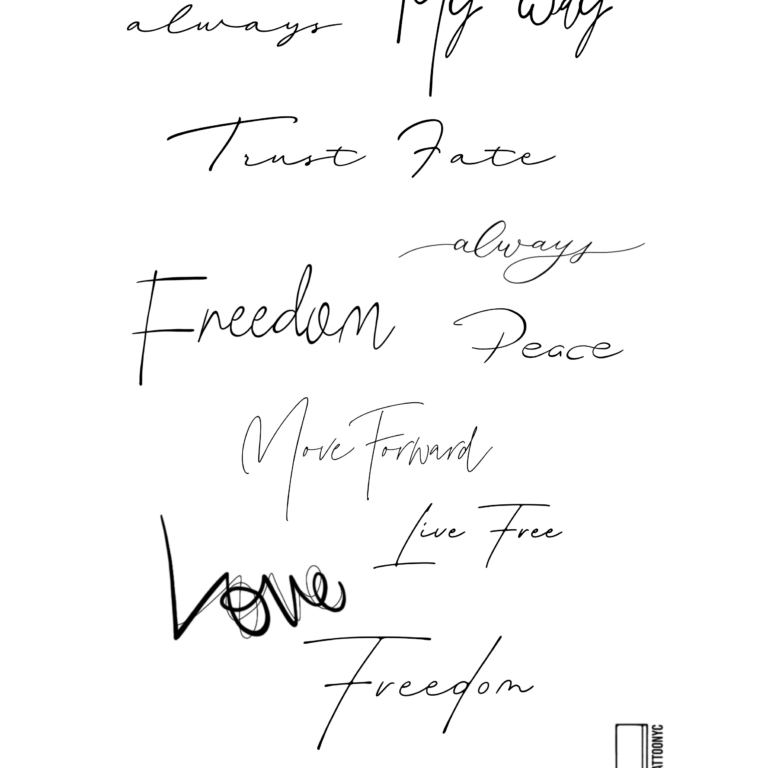 always My Way
Trust Fate
always
Freedom
Peace
Move Forward
Live Free
Love
Freedom
ATTOONYC